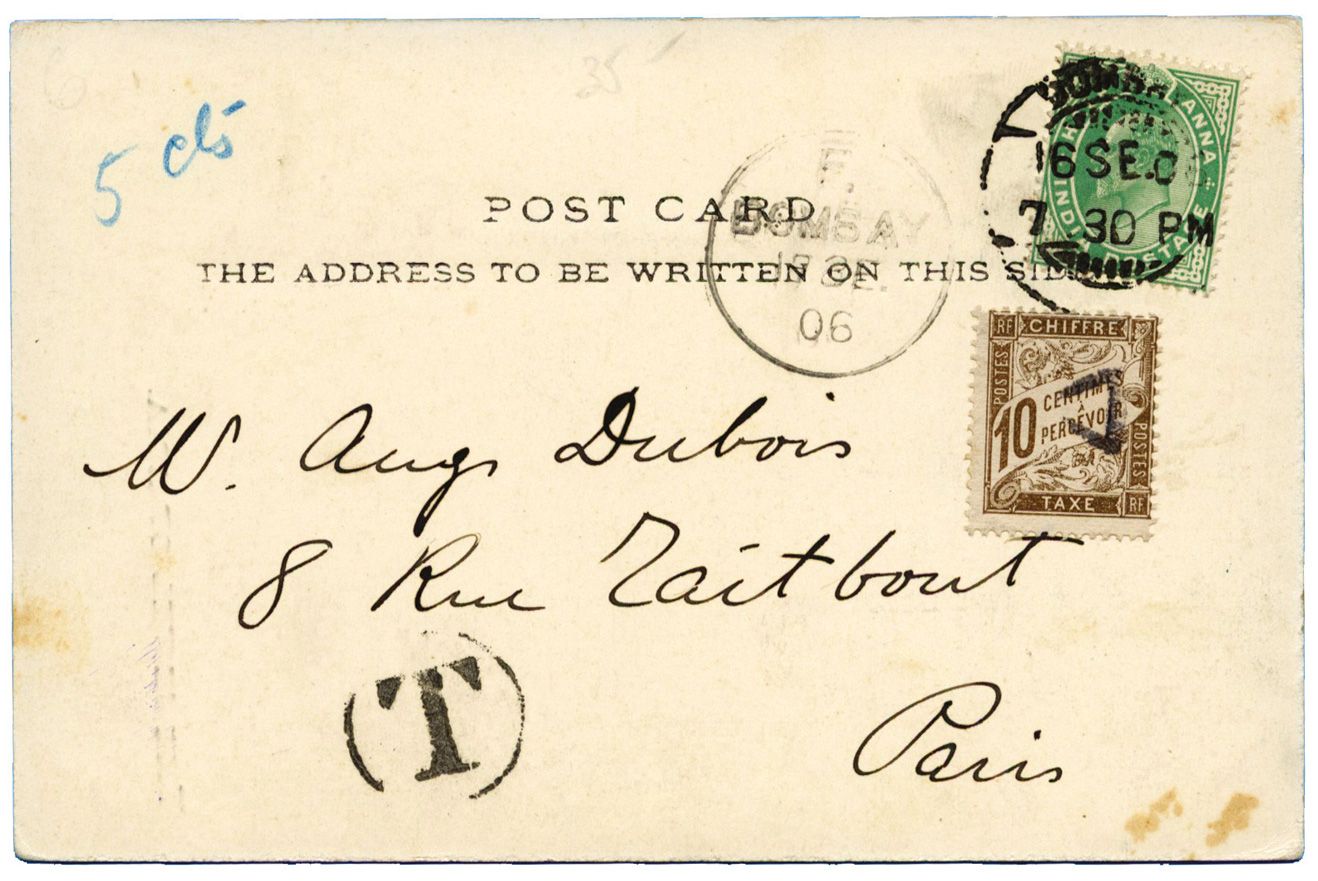 35
5 cts
POST CARD
THE ADDRESS TO BE WRITTEN ON THIS SIDE
F.
BOMBAY
17 SE.
06
BOMBAY
16 SE. 06
7.30 PM
INDIA POSTAGE
ANNA
RF CHIFFRE
POSTES
10 CENTIMES
À
PERCEVOIR
POSTES
TAXE RF
T
M. Aug. Dubois
8 Rue Taitbout
Paris
T